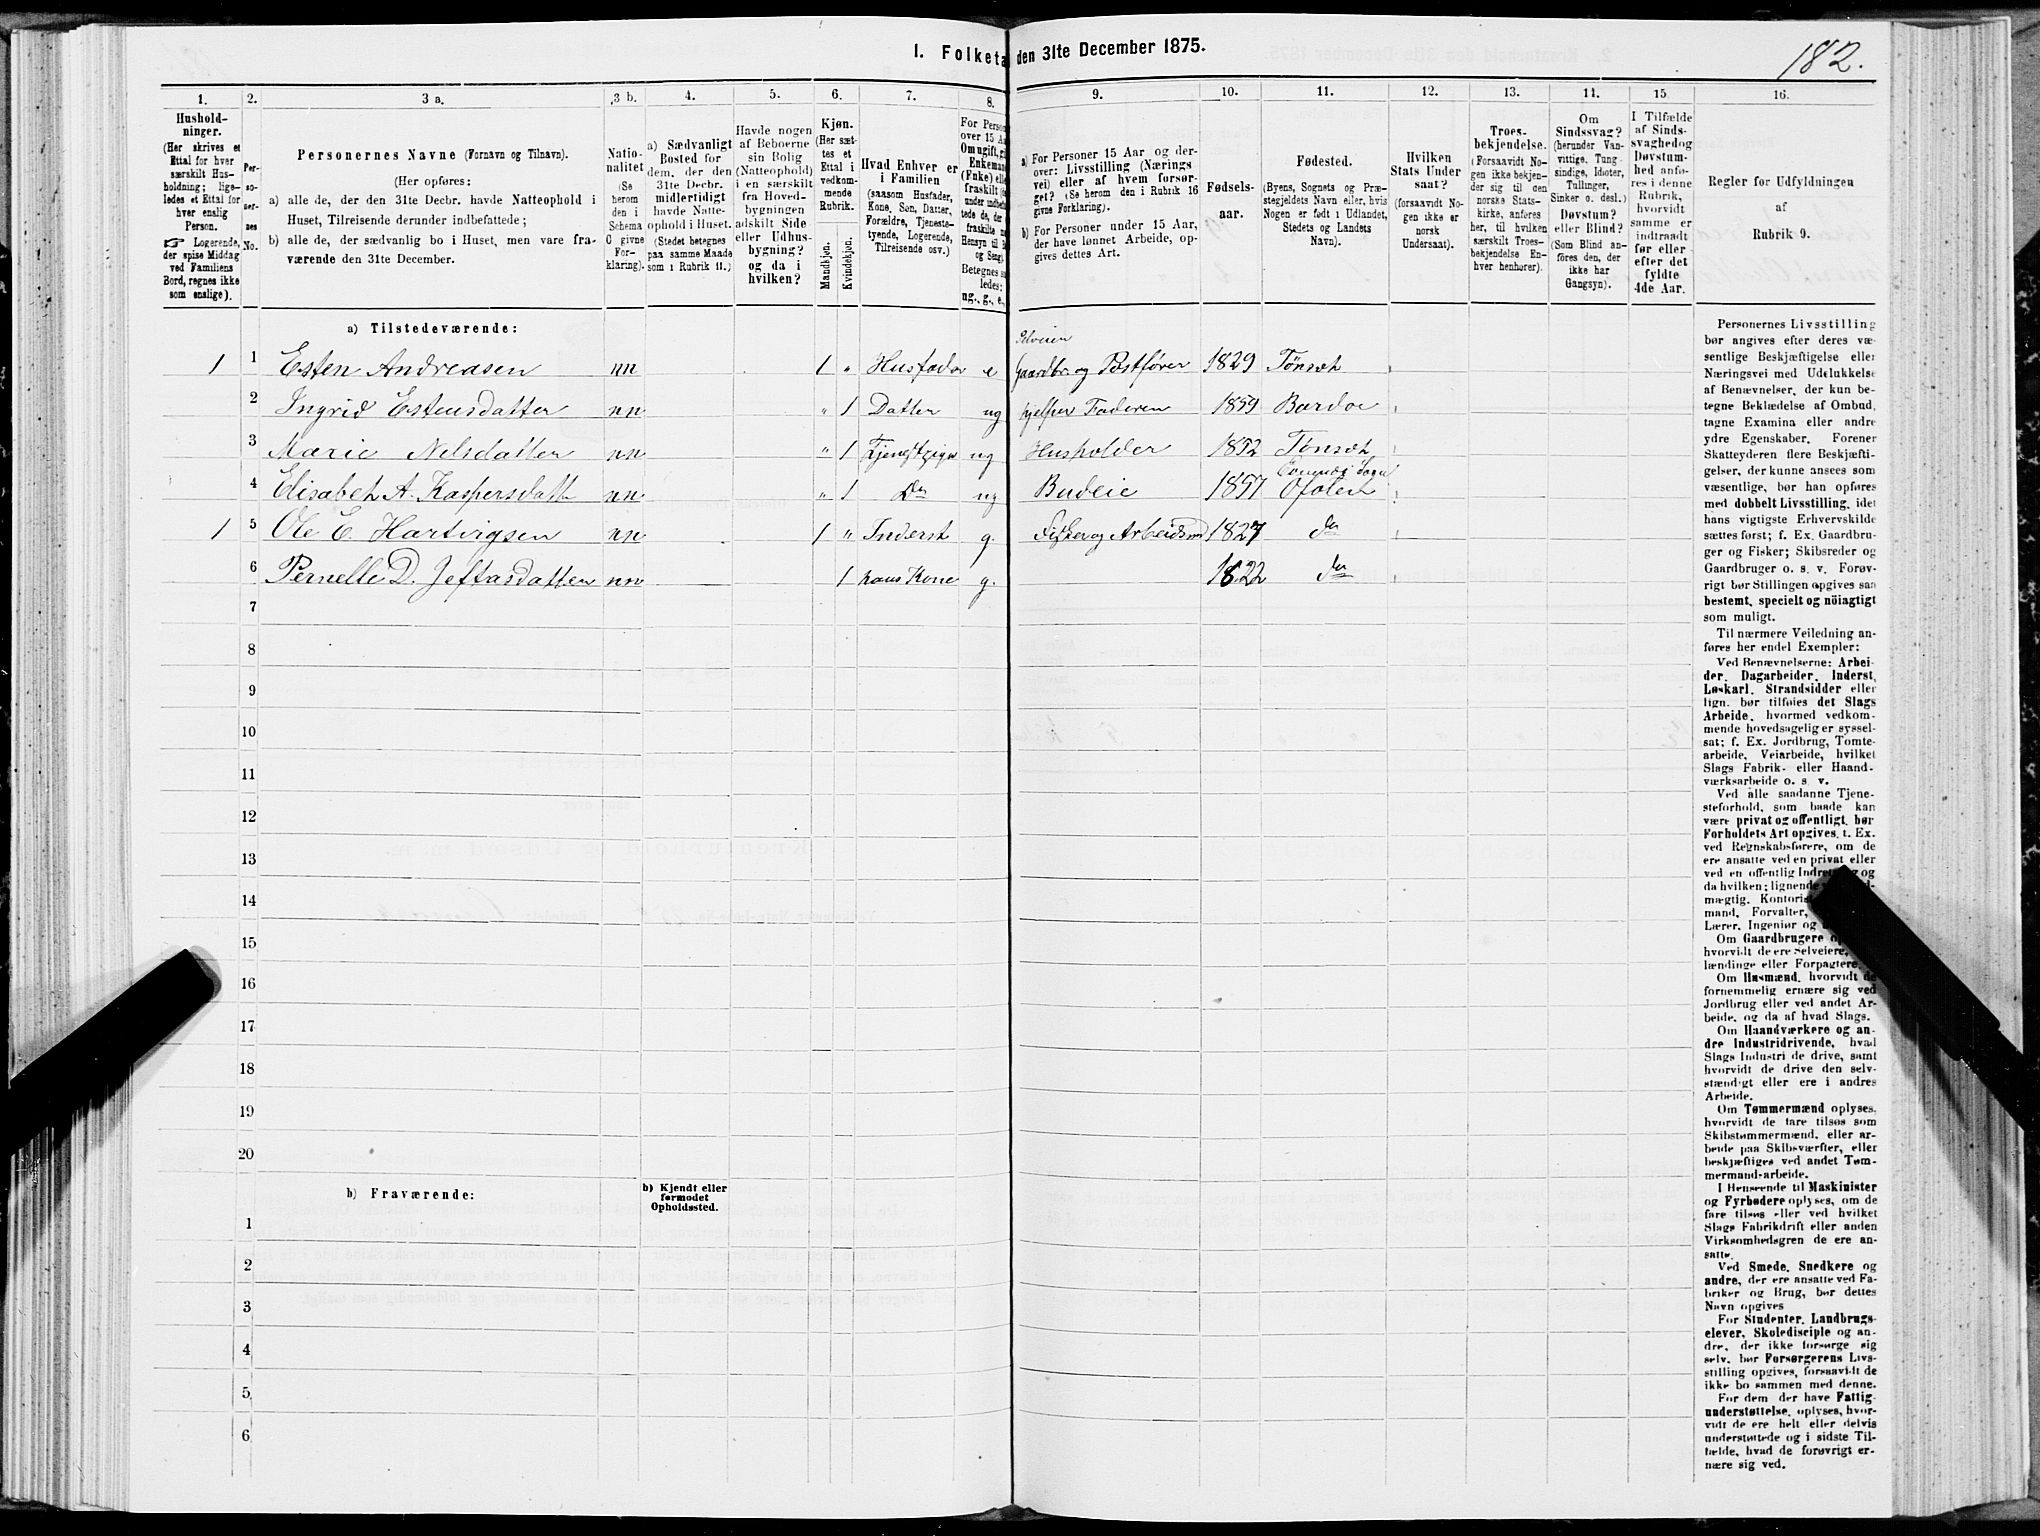 182.
I. Folketa den 31te December 1875.
1. 2. 3 a. 3 b. 4. 5. 6. 7. 8. 9. 10. 11. 12. 13. 14. 15. 16.
Hushold-
ninger.
(Her skrives et
Ettal for hver
særskilt Hus-
holdning; lige-
ledes et Ettal for
hver enslig
Person.
☞ Logerende,
der spise Middag
ved Familiens
Bord, regnes ikke
som enslige).
Per-
so-
ner-
nes
No.
Personernes Navne (Fornavn og Tilnavn).
(Her opføres:
a) alle de, der den 31te Decbr. havde Natteophold i
Huset, Tilreisende derunder indbefattede;
b) alle de, der sædvanlig bo i Huset, men vare fra-
værende den 31te December.
Natio-
nalitet
(Se
herom
den i
Schema
C givne
For-
klaring).
a) Sædvanligt
Bosted for
dem, der den
31te Decbr.
midlertidigt
havde Natte-
ophold i Huset.
(Stedet betegnes
paa samme Maade
som i Rubrik 11.)
Havde nogen
af Beboerne
sin Bolig
(Natteophold)
i en særskilt
fra Hoved-
bygningen
adskilt Side
eller Udhus-
bygning?
og da i
hvilken?
Kjøn.
(Her sæt-
tes et
Ettal i
vedkom-
mende
Rubrik.
Mandkjøn.
Kvindekjøn.
Hvad Enhver er
i Familien
(saasom Husfader,
Kone, Søn, Datter,
Forældre, Tjeneste-
tyende, Logerende,
Tilreisende osv.)
For Person
over 15 Aa
Om ugift, gi
Enkeman
(Enke) elle
fraskilt
under indbef
tede de, der
fraskilte
Hensyn til
og Seng).
Betegnes s
ledes:
ug., g., e.,
a) For Personer 15 Aar og der-
over: Livsstilling (Nærings
vei) eller af hvem forsør-
get? (Se herom den i Rubrik 16
givne Forklaring).
b) For Personer under 15 Aar,
der have lønnet Arbeide, op-
gives dettes Art.
Fødsels-
aar.
Fødested.
(Byens, Sognets og Præ-
stegjeldets Navn eller, hvis
Nogen er født i Udlandet,
Stedets og Landets
Navn).
Hvilken
Stats Under
saat?
(forsaavidt No-
gen ikke er
norsk
Undersaat).
Troes-
bekjendelse.
(Forsaavidt No-
gen ikke bekjen-
der sig til den
norske Stats-
kirke, anføres
her, til hvilken
særskilt Troes-
bekjendelse En-
hver henhører).
Om
Sindssvag?
(herunder Van-
vittige, Tung-
sindige, Idioter,
Tullinger,
Sinker o. desl.)
Døvstum?
eller Blind?
(Som Blind an-
føres den, der
ikke har
Gangsyn).
I Tilfælde
af Sinds-
svaghed og
Døvstum-
hed anfø-
res i denne
Rubrik,
hvorvidt
samme er
indtraadt
før eller
efter det
fyldte
4de Aar.
Regler for Udfyldningen
af
Rubrik 9.
a) Tilstedeværende:
Selveier
1 1 Esten Andreasen nn 1 „ Husfader e Gaardbr. og Postfører 1829 Tönset
2 Ingrid Estensdatter nn „ 1 Datter ug hjelper Faderen 1859 Bardoe
3 Marie Nilsdatter nn „ 1 Tjenestpige ug Husholder 1852 Tönset
4 Elisabet A. Kaspersdatt nn „ 1 Do ug Budeie 1857 Ofoten
1 5 Ole E. Hartvigsen nn 1 „ Inderst g. Fisker og Arbeidsm 1827 do
6 Pernelle D. Jeftasdatter nn 1 hans Kone g. 1822 do
7
8
9
10
11
12
13
14
15
16
17
18
19
20
b) Fraværende:
b) Kjendt eller
formodet
Opholdssted.
1
2
3
4
5
6
Personernes Livsstilling
bør angives efter deres væ-
sentlige Beskjæftigelse eller
Næringsvei med Udelukkelse
af Benævnelser, der kun be-
tegne Beklædelse af Ombud,
tagne Examina eller andre
ydre Egenskaber. Forener
Skatteyderen flere Beskjæfti-
gelser, der kunne ansees som
væsentlige, bør han opføres
med dobbelt Livsstilling, idet
hans vigtigste Erhvervskilde
sættes først; f. Ex. Gaardbru-
ger og Fisker; Skibsreder og
Gaardbruger o. s. v. Forøv-
rigt bør Stillingen opgives saa
bestemt, specielt og nöiagtigt
som muligt.
Til nærmere Veiledning an-
føres her endel Exempler:
Ved Benævnelserne: Arbei-
der, Dagarbeider, Inderst,
Løskarl, Strandsidder eller
lign. bør tilføies det Slags
Arbeide, hvormed vedkom-
mende hovedsagelig er syssel-
sat; f. Ex. Jordbrug, Tomte-
arbeide, Veiarbeide, hvilket
Slags Fabrik- eller Haand-
værksarbeide o. s. v.
Ved alle saadanne Tjene-
steforhold, som baade kan
være privat og offentligt, bør
Forholdets Art opgives, t. Ex.
ved Regnskabsførere, om de
ere ansatte ved en privat eller
ved en offentlig Indretning og
da hvilken; lignende
mægtig, Kontoris
mand, Forvalter,
Lærer, Ingeniør og
Om Gaardbrugere op
hvorvidt de ere Selveiere,
lændinge eller Forpagtere.
Om Husmænd, hvorvidt de
fornemmelig ernære sig ved
Jordbrug eller ved andet Ar-
beide, og da af hvad Slags.
Om Haandværkere og an-
dre Industridrivende, hvad
Slags Industri de drive, samt
hvorvidt de drive den selv-
stændigt eller ere i andres
Arbeide.
Om Tømmermænd oplyses,
hvorvidt de fare tilsøs som
Skibstømmermænd, eller ar-
beide paa Skibsværfter, eller
beskjæftiges ved andet Tøm-
mermandsarbeide.
I Henseende til Maskinister
og Fyrbødere oplyses, om de
fare tilsøs eller ved hvilket
Slags Fabrikdrift eller anden
Virksomhedsgren de ere an-
satte.
Ved Smede, Snedkere og
andre, der ere ansatte ved Fa-
briker og Brug, bør dettes
Navn opgives
For Studenter, Landbrugs-
elever, Skoledisciple og an-
dre, der ikke forsørge sig
selv, bør Forsørgerens Livs-
stilling opgives, forsaavidt de
ikke bo sammen med denne.
For dem der have Fattig-
understøttelse, oplyses, hvor-
vidt de ere helt eller delvis
understøttede og i sidste Til-
fælde, hvad de forøvrigt er-
nære sig ved.